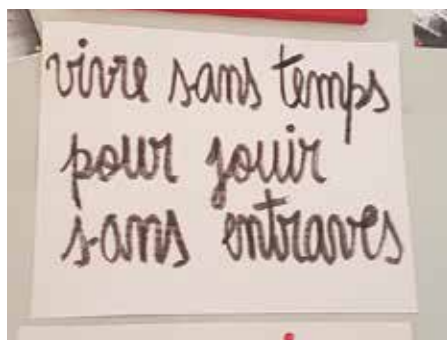 vivre sans temps
pour jouir
sans entraves